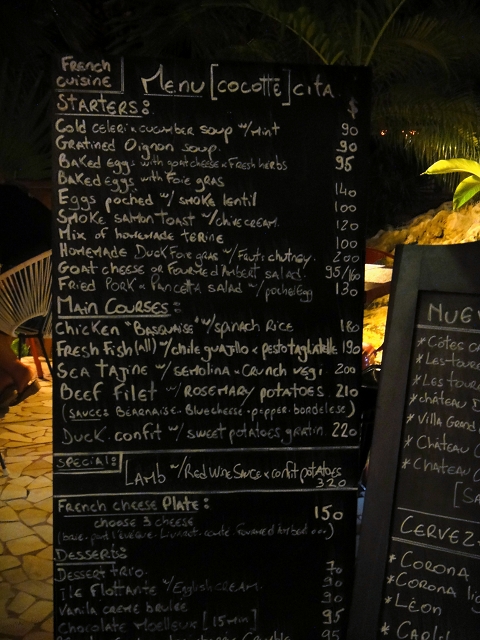 French
cuisine
Menu [cocotte] cita
$
Starters:
Cold celeri & cucumber soup w/Mint 90
Gratined Oignon soup. 90
Baked eggs with goat cheese & fresh herbs 95
Baked eggs with Foie gras 140
Eggs poched w/ smoke lentil 100
Smoke salmon toast w/chive cream. 120
Mix of homemade terine 100
Homemade Duck Foie gras w/ Fruti chutney. 200
Goat cheese or Fourme d'Ambert salad. 95/160
Fried Pork & Pancetta salad w/poche/Egg 130
Main Courses:
Chicken "Basquaise" w/spinach Rice 180
Fresh Fish (All) w/chile guajillo & pesto tagliatelle 190
Sea Tajine w/ semolina & crunch vegi. 200
Beef Filet w/ rosemary potatoes. 210
(sauces Béarnaise. Blue cheese. pepper. bordelese)
Duck confit w/ sweet potatoes gratin. 220
special:
Lamb w/Red Wine Sauce & confit potatoes
320
French cheese Plate: 150
choose 3 cheese
Desserts:
Dessert trio. 70
île Flottante w/English cream. 90
Vanilla creme brulée 90
Chocolate Moelleux [15min] 95
Crumble
Nue
*Côtes
*Les tou
*Les tou
*château
*Villa Grand
*Château
*Chateau
[Sa
Cervez
*Corona
*Corona li
*Léon
*